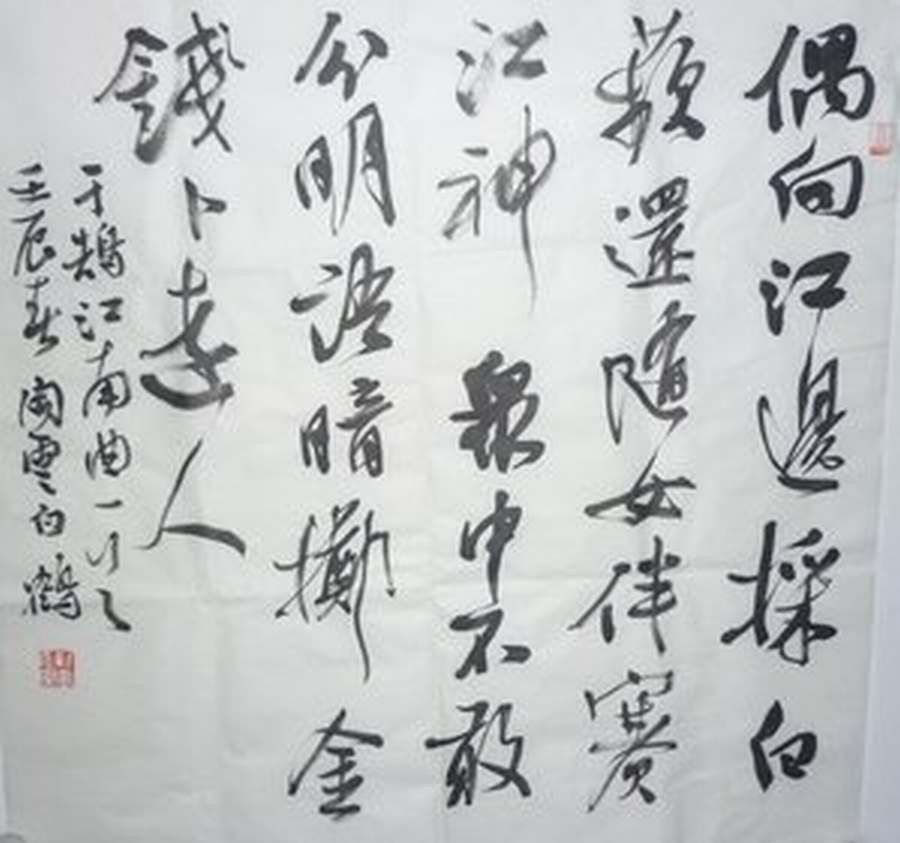 偶向江邊採白
蘋還隨女伴賽
江神眾中不敢
分明語暗擲金
錢卜遠人
于鵠江南曲一首
壬辰春閩白鶴